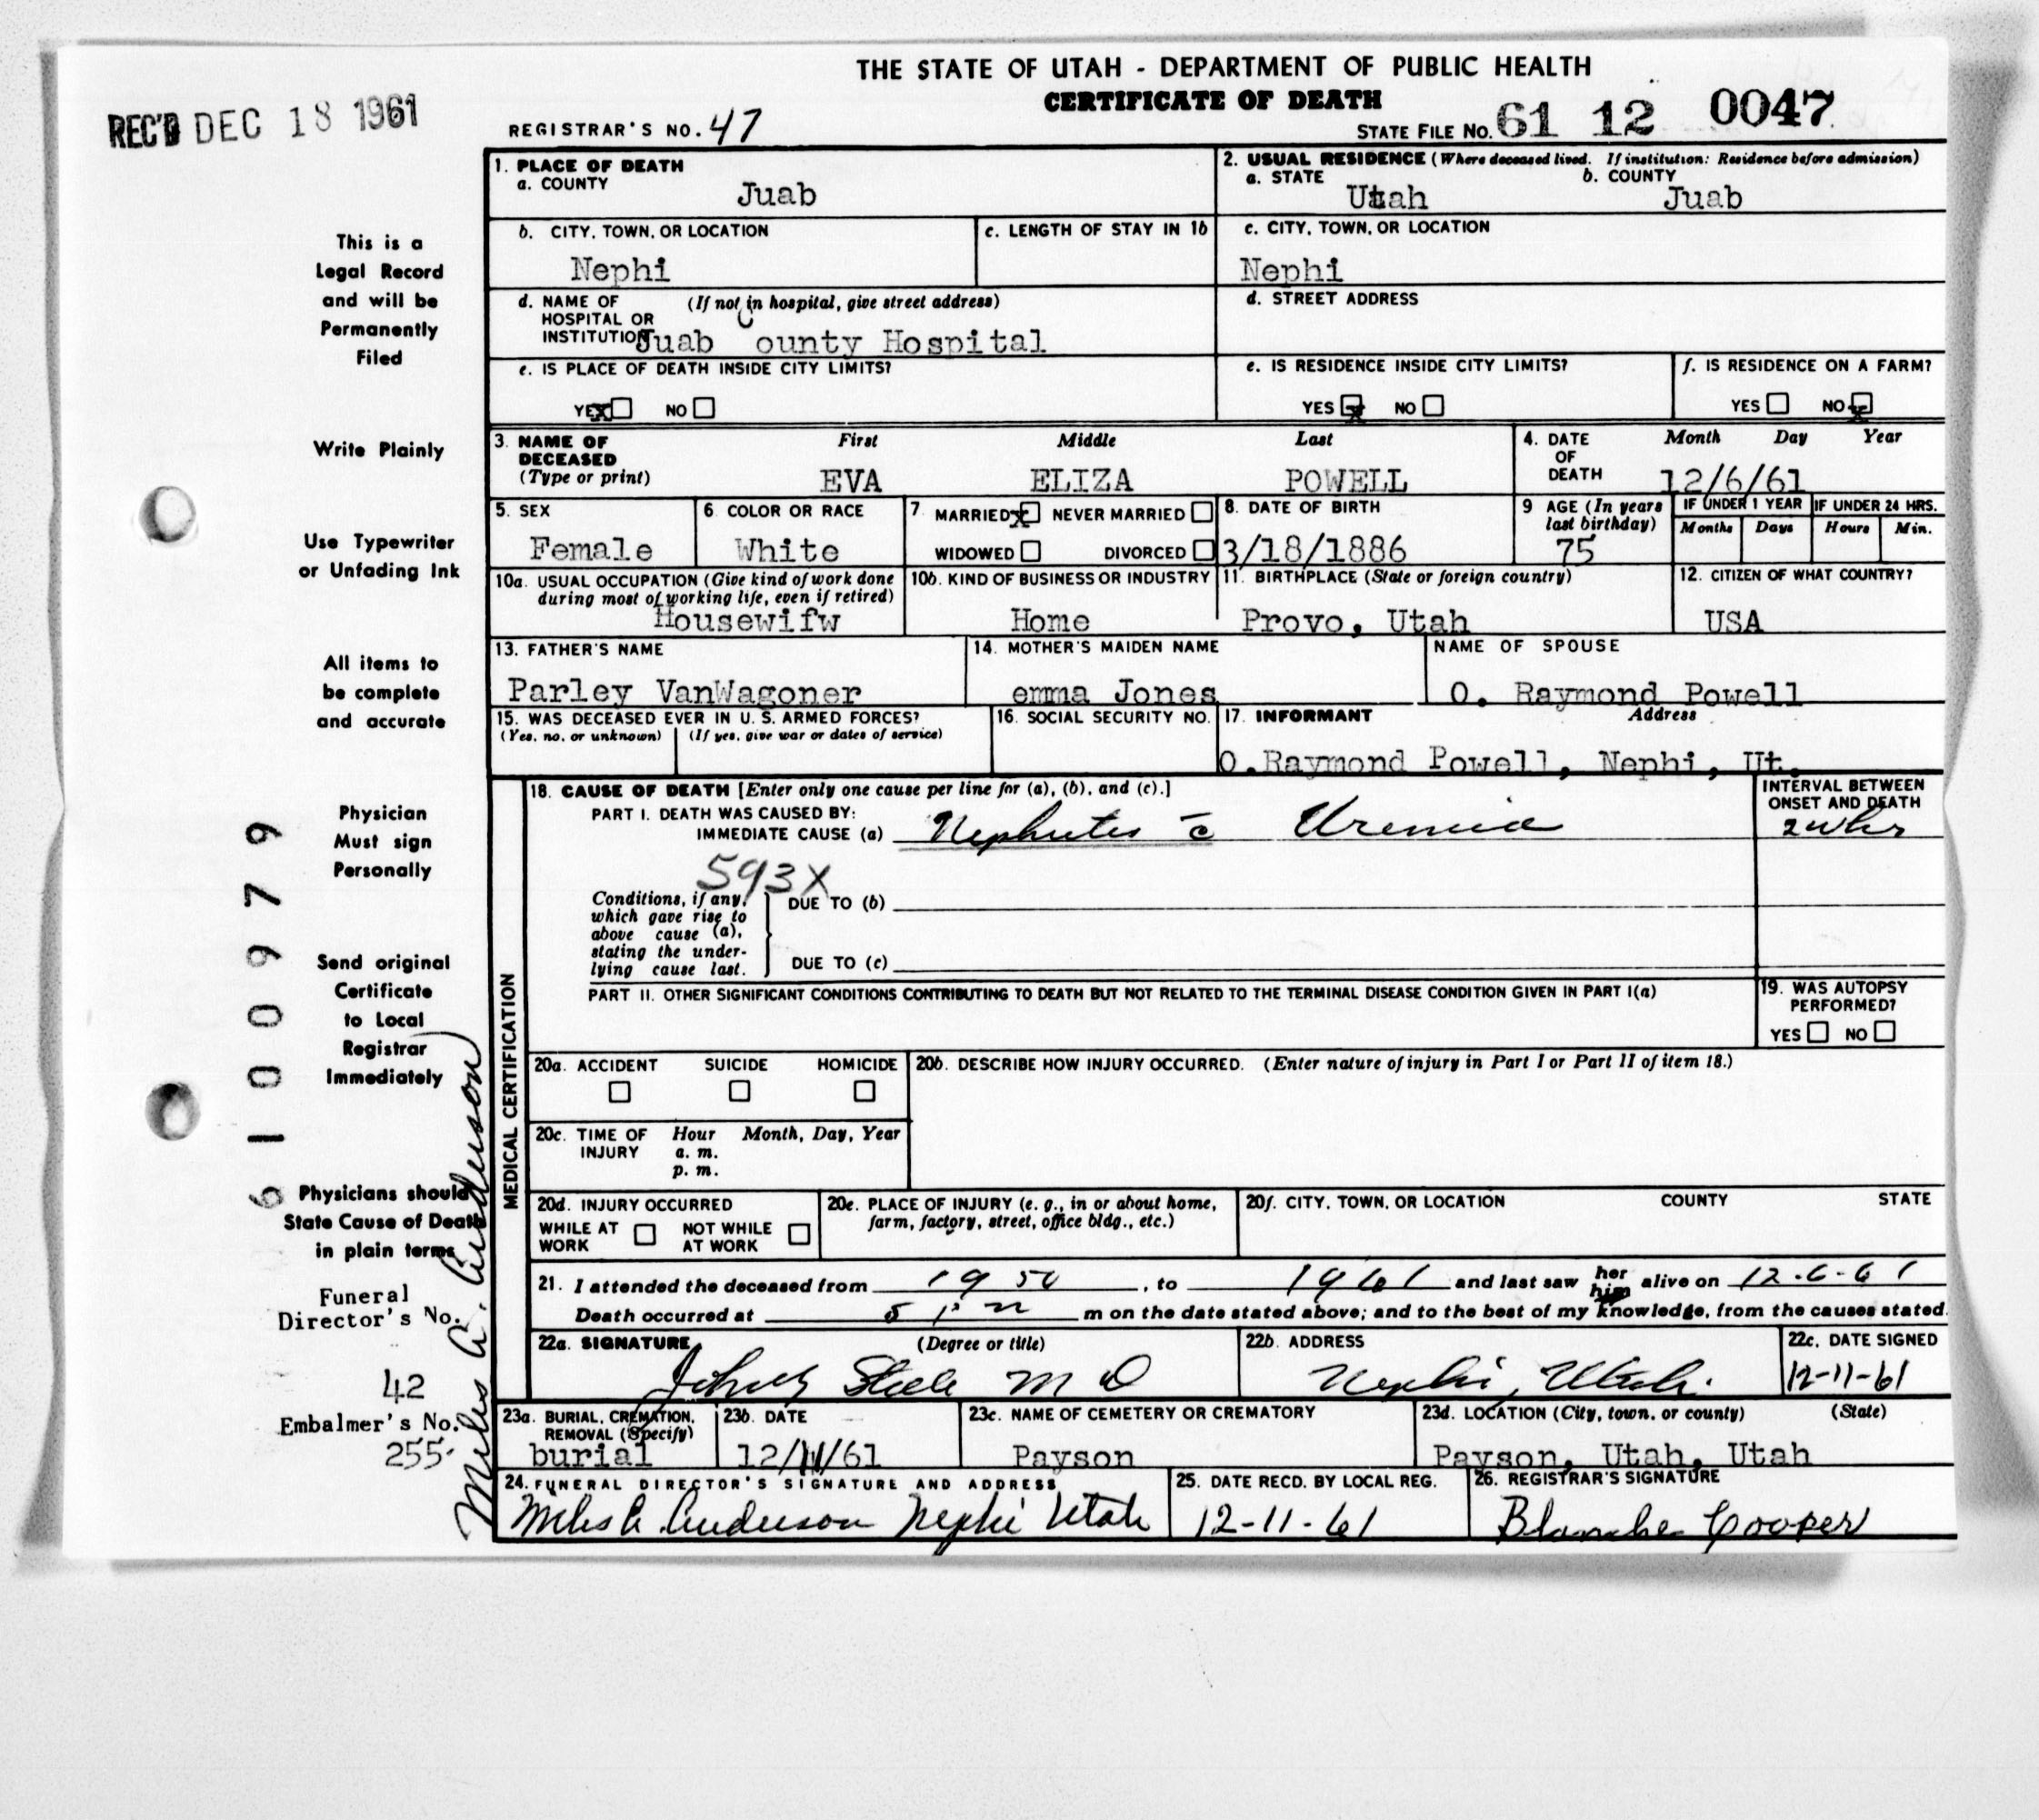 THE STATE OF UTAH - DEPARTMENT OF PUBLIC HEALTH
CERTIFICATE OF DEATH
REC'D DEC 18 1961
REGISTRAR'S NO. 47
STATE FILE NO. 61 12 0047
1. PLACE OF DEATH
a. COUNTY
Juab
2. USUAL RESIDENCE (Where deceased lived. If institution: Residence before admission)
a. STATE b. COUNTY
Utah Juab
b. CITY, TOWN, OR LOCATION
Nephi
c. LENGTH OF STAY IN 1b
c. CITY, TOWN, OR LOCATION
Nephi
d. NAME OF (If not in hospital, give street address)
HOSPITAL OR
INSTITUTION Juab County Hospital
d. STREET ADDRESS
e. IS PLACE OF DEATH INSIDE CITY LIMITS?
YES X NO
e. IS RESIDENCE INSIDE CITY LIMITS?
YES x NO
f. IS RESIDENCE ON A FARM?
YES NO x
3. NAME OF DECEASED (Type or print)
First Middle Last
EVA ELIZA POWELL
4. DATE OF DEATH
Month Day Year
12/6/61
5. SEX
Female
6. COLOR OR RACE
White
7. MARRIED x NEVER MARRIED
WIDOWED DIVORCED
8. DATE OF BIRTH
3/18/1886
9 AGE (In years
last birthday)
75
IF UNDER 1 YEAR
Months Days
IF UNDER 24 HRS.
Hours Min.
10a. USUAL OCCUPATION (Give kind of work done
during most of working life, even if retired)
Housewifw
10b. KIND OF BUSINESS OR INDUSTRY
Home
11. BIRTHPLACE (State or foreign country)
Provo, Utah
12. CITIZEN OF WHAT COUNTRY?
USA
13. FATHER'S NAME
Parley VanWagoner
14. MOTHER'S MAIDEN NAME
emma Jones
NAME OF SPOUSE
O. Raymond Powell
15. WAS DECEASED EVER IN U. S. ARMED FORCES?
(Yes, no, or unknown) (If yes, give war or dates of service)
16. SOCIAL SECURITY NO.
17. INFORMANT Address
O.Raymond Powell, Nephi, Ut.
MEDICAL CERTIFICATION
18. CAUSE OF DEATH [Enter only one cause per line for (a), (b), and (c).]
PART I. DEATH WAS CAUSED BY:
IMMEDIATE CAUSE (a) Nephritis c̄ Uremia
INTERVAL BETWEEN
ONSET AND DEATH
593X
Conditions, if any,
which gave rise to
above cause (a),
stating the under-
lying cause last.
DUE TO (b)
DUE TO (c)
PART II. OTHER SIGNIFICANT CONDITIONS CONTRIBUTING TO DEATH BUT NOT RELATED TO THE TERMINAL DISEASE CONDITION GIVEN IN PART I(a)
19. WAS AUTOPSY
PERFORMED?
YES NO
20a. ACCIDENT SUICIDE HOMICIDE
20b. DESCRIBE HOW INJURY OCCURRED. (Enter nature of injury in Part I or Part II of item 18.)
20c. TIME OF INJURY
Hour Month, Day, Year
a. m.
p. m.
20d. INJURY OCCURRED
WHILE AT WORK NOT WHILE AT WORK
20e. PLACE OF INJURY (e. g., in or about home,
farm, factory, street, office bldg., etc.)
20f. CITY, TOWN, OR LOCATION COUNTY STATE
21. I attended the deceased from 1950, to 1961 and last saw her him alive on 12-6-61
Death occurred at 5 P m m on the date stated above; and to the best of my knowledge, from the causes stated.
22a. SIGNATURE (Degree or title)
Steele M D
22b. ADDRESS
Nephi, Utah.
22c. DATE SIGNED
12-11-61
23a. BURIAL, CREMATION,
REMOVAL (Specify)
burial
23b. DATE
12/11/61
23c. NAME OF CEMETERY OR CREMATORY
Payson
23d. LOCATION (City, town, or county) (State)
Payson, Utah, Utah
24. FUNERAL DIRECTOR'S SIGNATURE AND ADDRESS
Miles A. Anderson Nephi Utah
25. DATE RECD. BY LOCAL REG.
12-11-61
26. REGISTRAR'S SIGNATURE
Blanche Cooper
This is a
Legal Record
and will be
Permanently
Filed
Write Plainly
Use Typewriter
or Unfading Ink
All items to
be complete
and accurate
Physician
Must sign
Personally
Send original
Certificate
to Local
Registrar
Immediately
Physicians should
State Cause of Death
in plain terms
Funeral
Director's No.
42
Embalmer's No.
255.
Miles A. Anderson
6100979